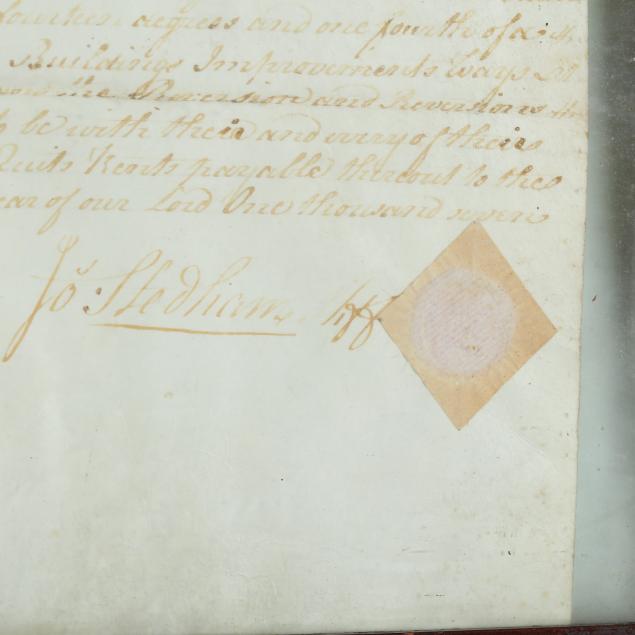 fourteen degrees and one fourth of a
Buildings Improvements Ways
the Reversion and Reversions
be with their and every of their
Quits Rents payable thereout to the
ear of our Lord One thousand seven
Jo: Stedham